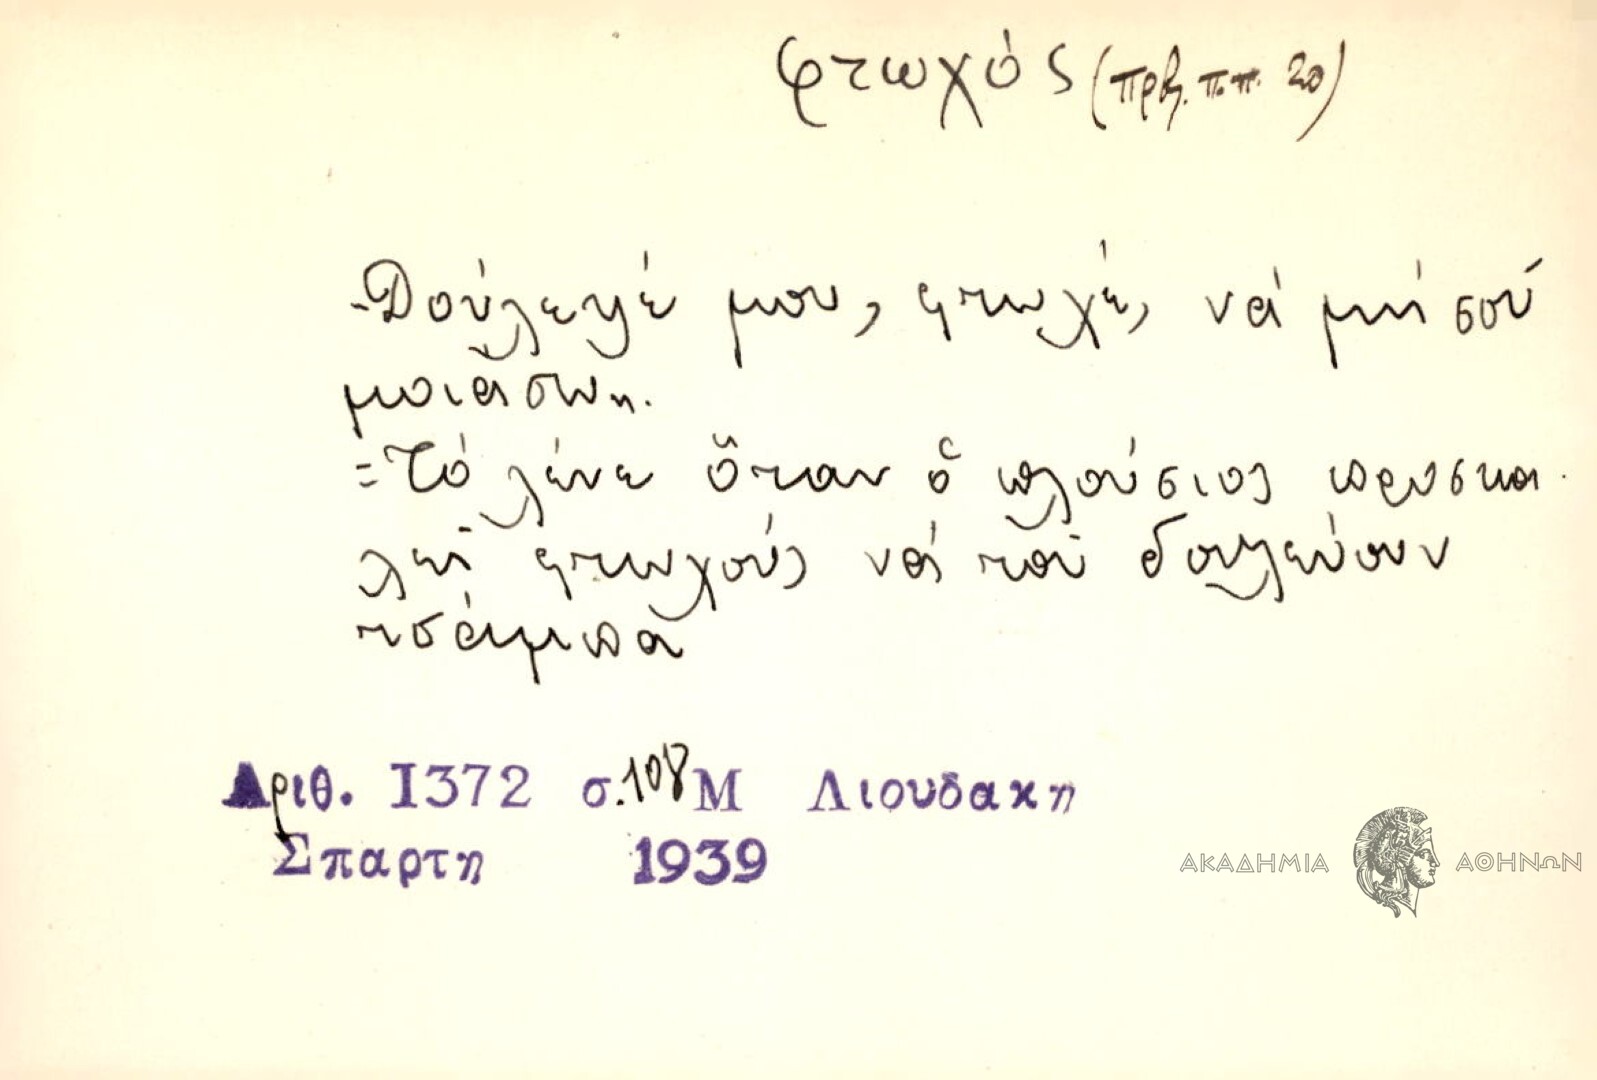 φτωχός (πρβ. π.π. 20)
-Δούλεψέ μου, φτωχέ, νά μή σού
μοιάσω.
=Τό λένε ὅταν ὁ πλούσιος προσκα-
λεῖ φτωχούς νά τοῦ δουλεύουν
τσάμπα
Αριθ. I372 σ.108 Μ Λιουδακη
Σπαρτη 1939
ΑΚΑΔΗΜΙΑ ΑΘΗΝΩΝ